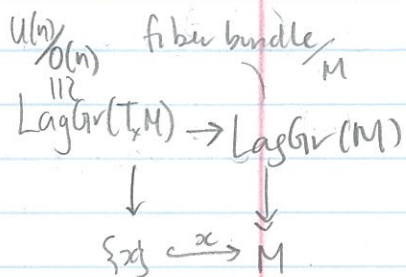 U(n)/O(n) fiber bundle/M
|||2
LagGr(TₓM) → LagGr(M)
↓ ↓
{x} x M